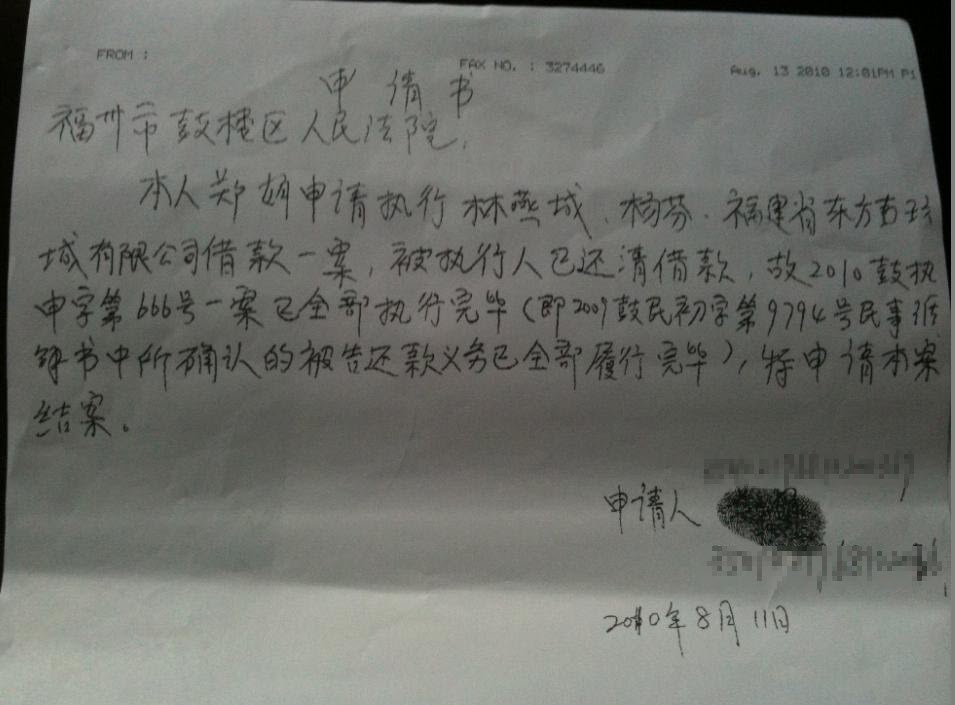 FROM :
FAX NO. : 3274446
Aug. 13 2010 12:01PM P1
申请书
福州市鼓楼区人民法院,
本人郑娟申请执行林燕城、杨芬、福建省东方
城有限公司借款一案,被执行人已还清借款,故2010鼓执
申字第666号一案已全部执行完毕(即2009鼓民初字第9794号民事调
解书中所确认的被告还款义务已全部履行完毕),特申请本案
结案。
申请人
2010年8月11日